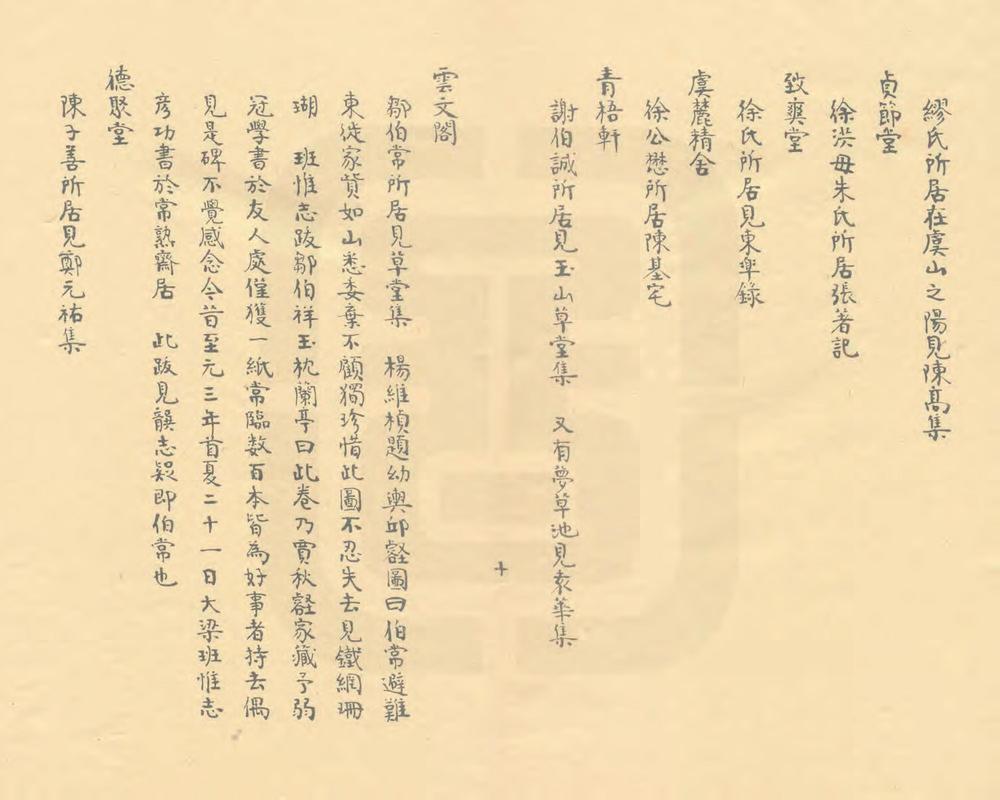 繆氏所居在虞山之陽見陳高集
貞節堂
徐洪母朱氏所居張著記
致爽堂
徐氏所居見東臯錄
虞麓精舍
徐公懋所居陳基宅
青梧軒
謝伯誠所居見玉山草堂集　又有夢草池見袁華集
十
雲文閣
鄒伯常所居見草堂集　楊維楨題幼輿邱壑圖曰伯常避難
東徙家貲如山悉委棄不顧獨珍惜此圖不忍失去見鐵網珊
瑚　班惟志跋鄒伯祥玉枕蘭亭曰此卷乃賈秋壑家藏予弱
冠學書於友人處僅獲一紙常臨數百本皆為好事者持去偶
見是碑不覺感念今昔至元三年首夏二十一日大梁班惟志
彦功書於常熟齋居　此跋見龔志疑即伯常也
德聚堂
陳子善所居見鄭元祐集